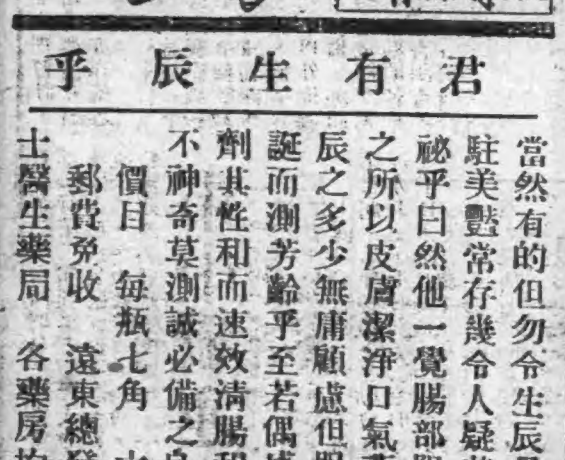 君有生辰乎
當然有的但勿令生辰
駐美豔常存幾令人疑
祕乎曰然他一覺腸部
之所以皮膚潔淨口氣
辰之多少無庸顧慮但
誕而測芳齡乎至若偶
劑其性和而速效清腸
不神奇莫測誠必備之
價目 每瓶七角
郵費免收 遠東總發
士醫生藥局 各藥房均